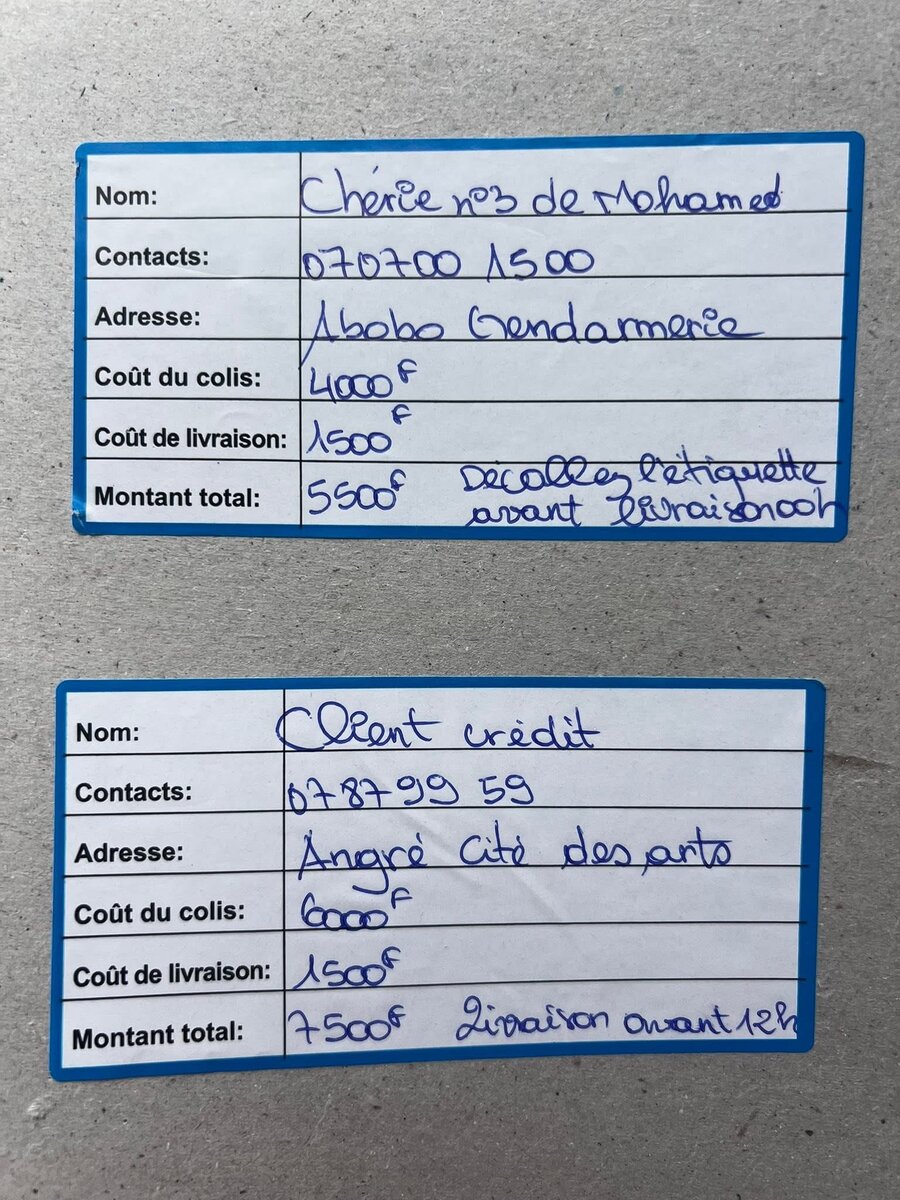 Nom: Chérie n°3 de Mohamed
Contacts: 070700 1500
Adresse: Abobo Gendarmerie
Coût du colis: 4000F
Coût de livraison: 1500F
Montant total: 5500F Décollez l'étiquette
avant livraison 00h
Nom: Client crédit
Contacts: 078799 59
Adresse: Angré Cité des arts
Coût du colis: 6000F
Coût de livraison: 1500F
Montant total: 7500F Livraison avant 12h